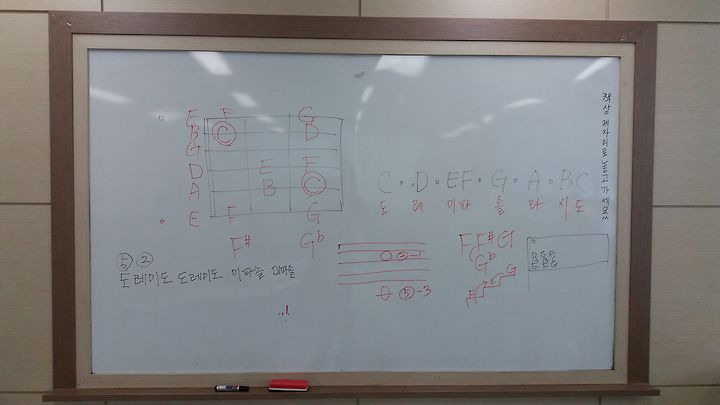 E F G
B C D
G
D E F
A B C
E F G
F# Gb
⑤ ②
도레미도 도레미도 미파솔 미파솔
C · D · EF · G · A · BC
도 레 미파 솔 라 시도
②-1
⑤-3
F F# G
Gb
F G
책상 제자리로 놓고 가세요